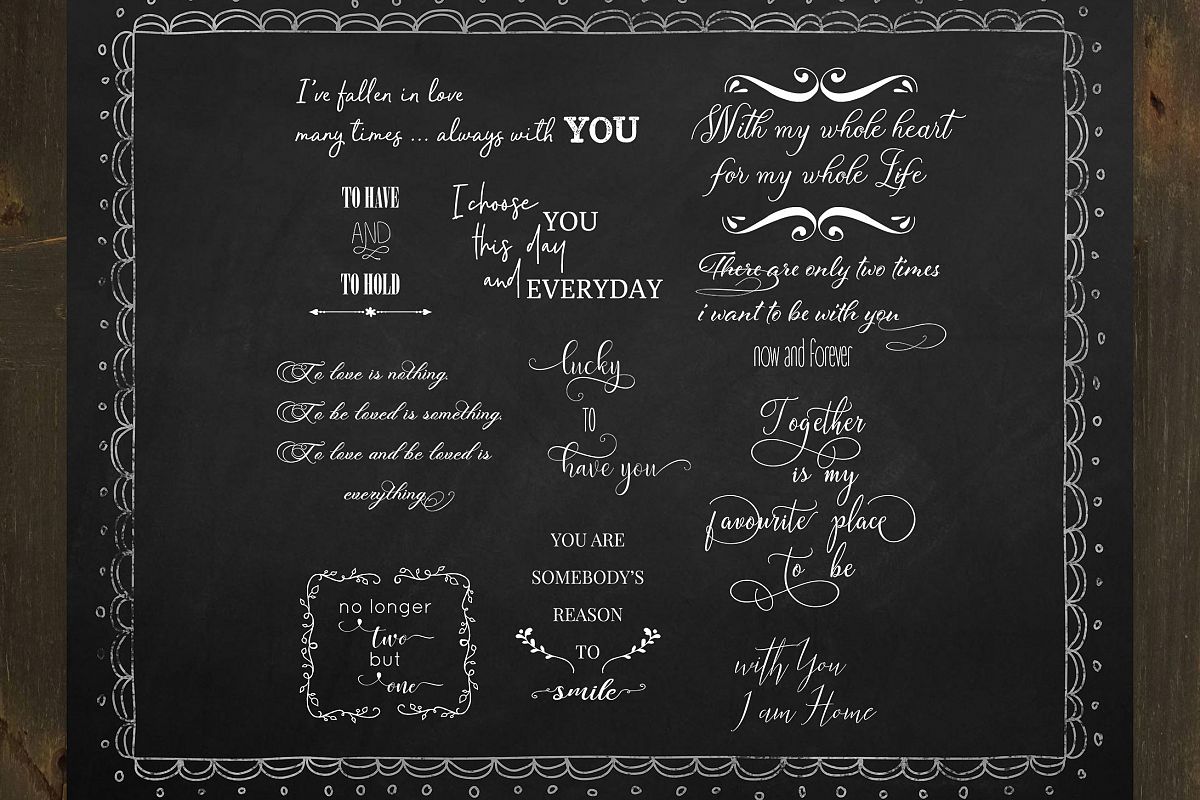 I've fallen in love
many times ... always with YOU
TO HAVE
AND
TO HOLD
I choose YOU
this day
and EVERYDAY
To love is nothing.
To be loved is something.
To love and be loved is
everything
lucky
TO
have you
no longer
two
but
one
YOU ARE
SOMEBODY'S
REASON
TO
smile
With my whole heart
for my whole Life
There are only two times
i want to be with you
now and forever
Together
is my
favourite place
to be
with You
I am Home